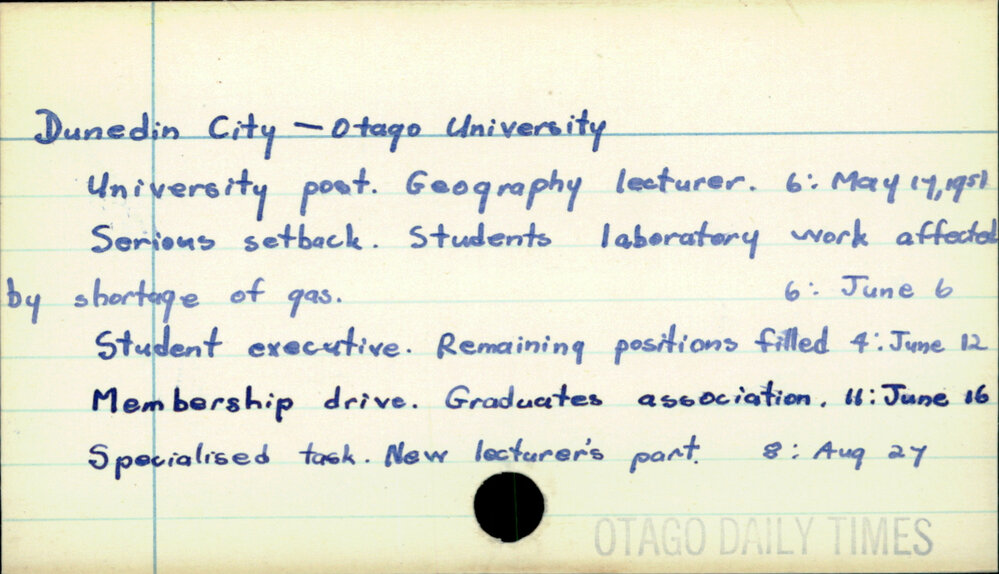 Dunedin City — Otago University
University post. Geography lecturer. 6: May 17, 1951
Serious setback. Students laboratory work affected
by shortage of gas. 6: June 6
Student executive. Remaining positions filled 4: June 12
Membership drive. Graduates association. 11: June 16
Specialised task. New lecturer's part. 8: Aug 27
OTAGO DAILY TIMES